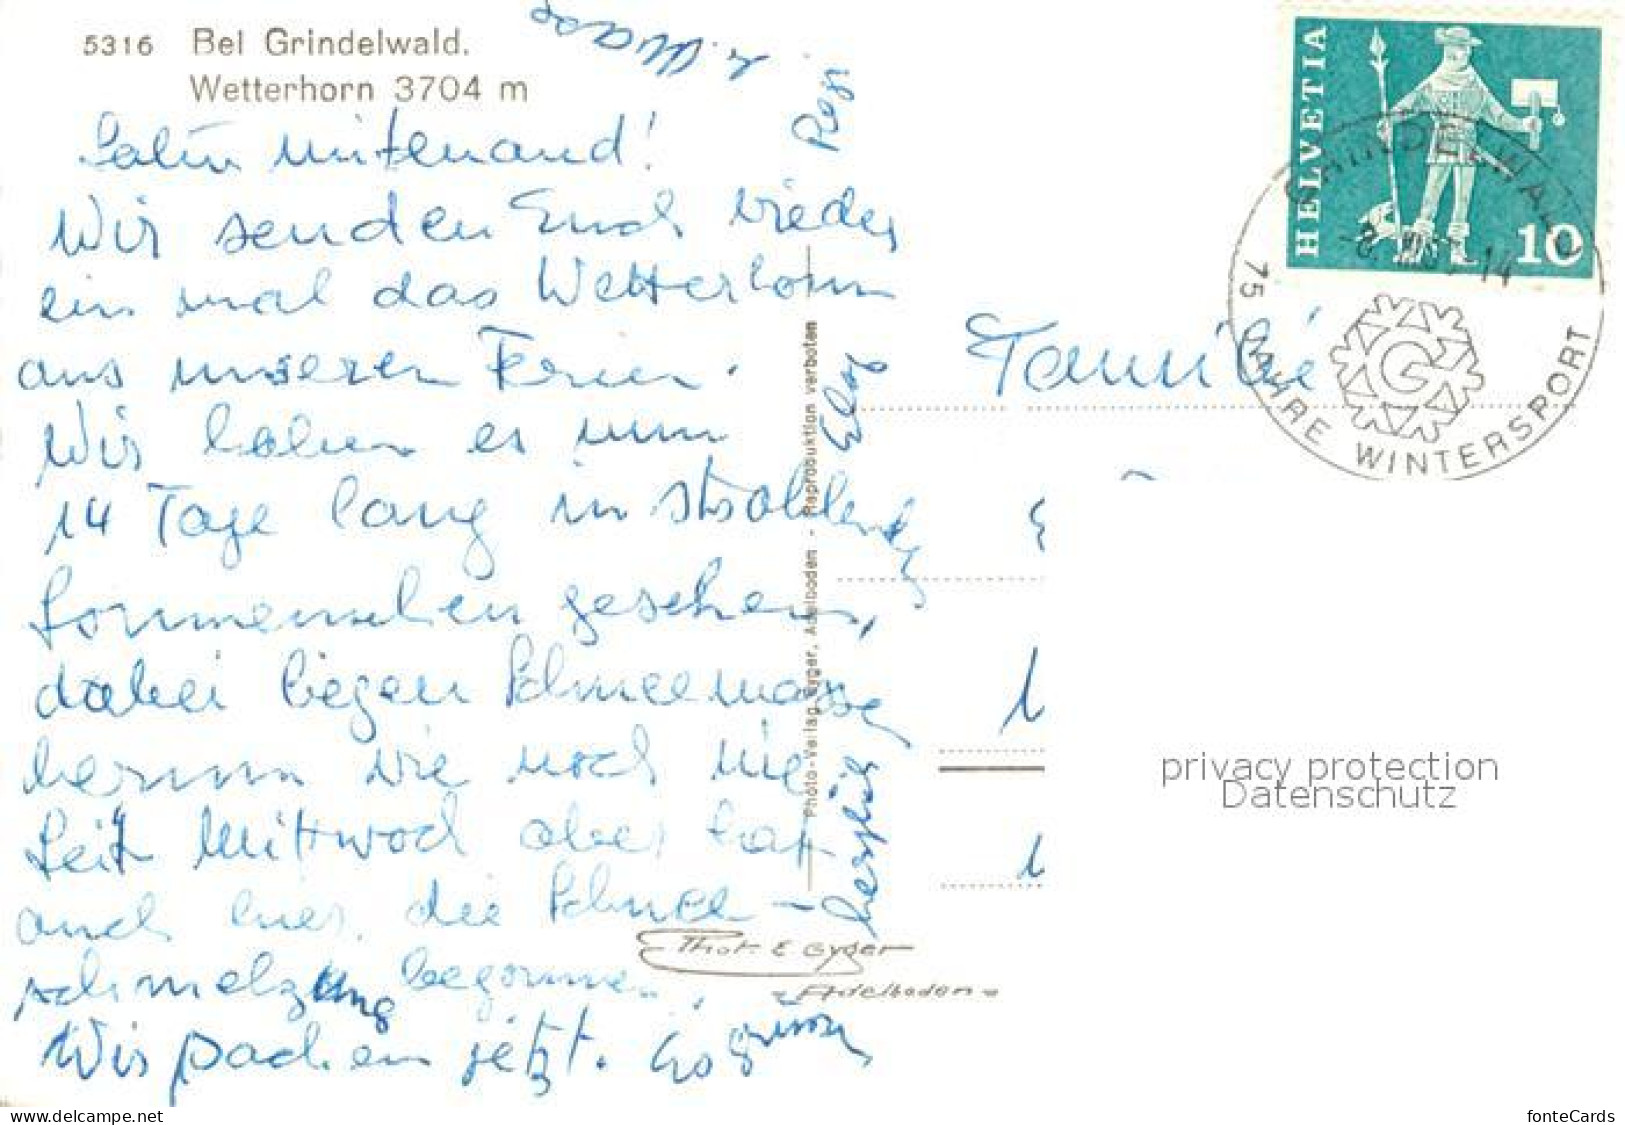 5316 Bei Grindelwald.
Wetterhorn 3704 m
Salü mitenand!
Wir senden Euch wieder
ein mal das Wetterhorn
aus unseren Ferien.
Wir haben es nun
14 Tage lang in strahlendem
Sonnenschein gesehen,
dabei liegen Schneemassen
herum wie noch nie
Seit Mittwoch aber hat
auch hier die Schnee-
schmelzung begonnen.
Wir packen jetzt. Es grüsst
herzlich
Regi
Photo-Verlag Gyger, Adelboden - Reproduktion verboten
Phot. E Gyger
Adelboden
HELVETIA
10
GRINDELWALD
75 JAHRE WINTERSPORT
G
Familie
privacy protection
Datenschutz
www.delcampe.net
fonteCards